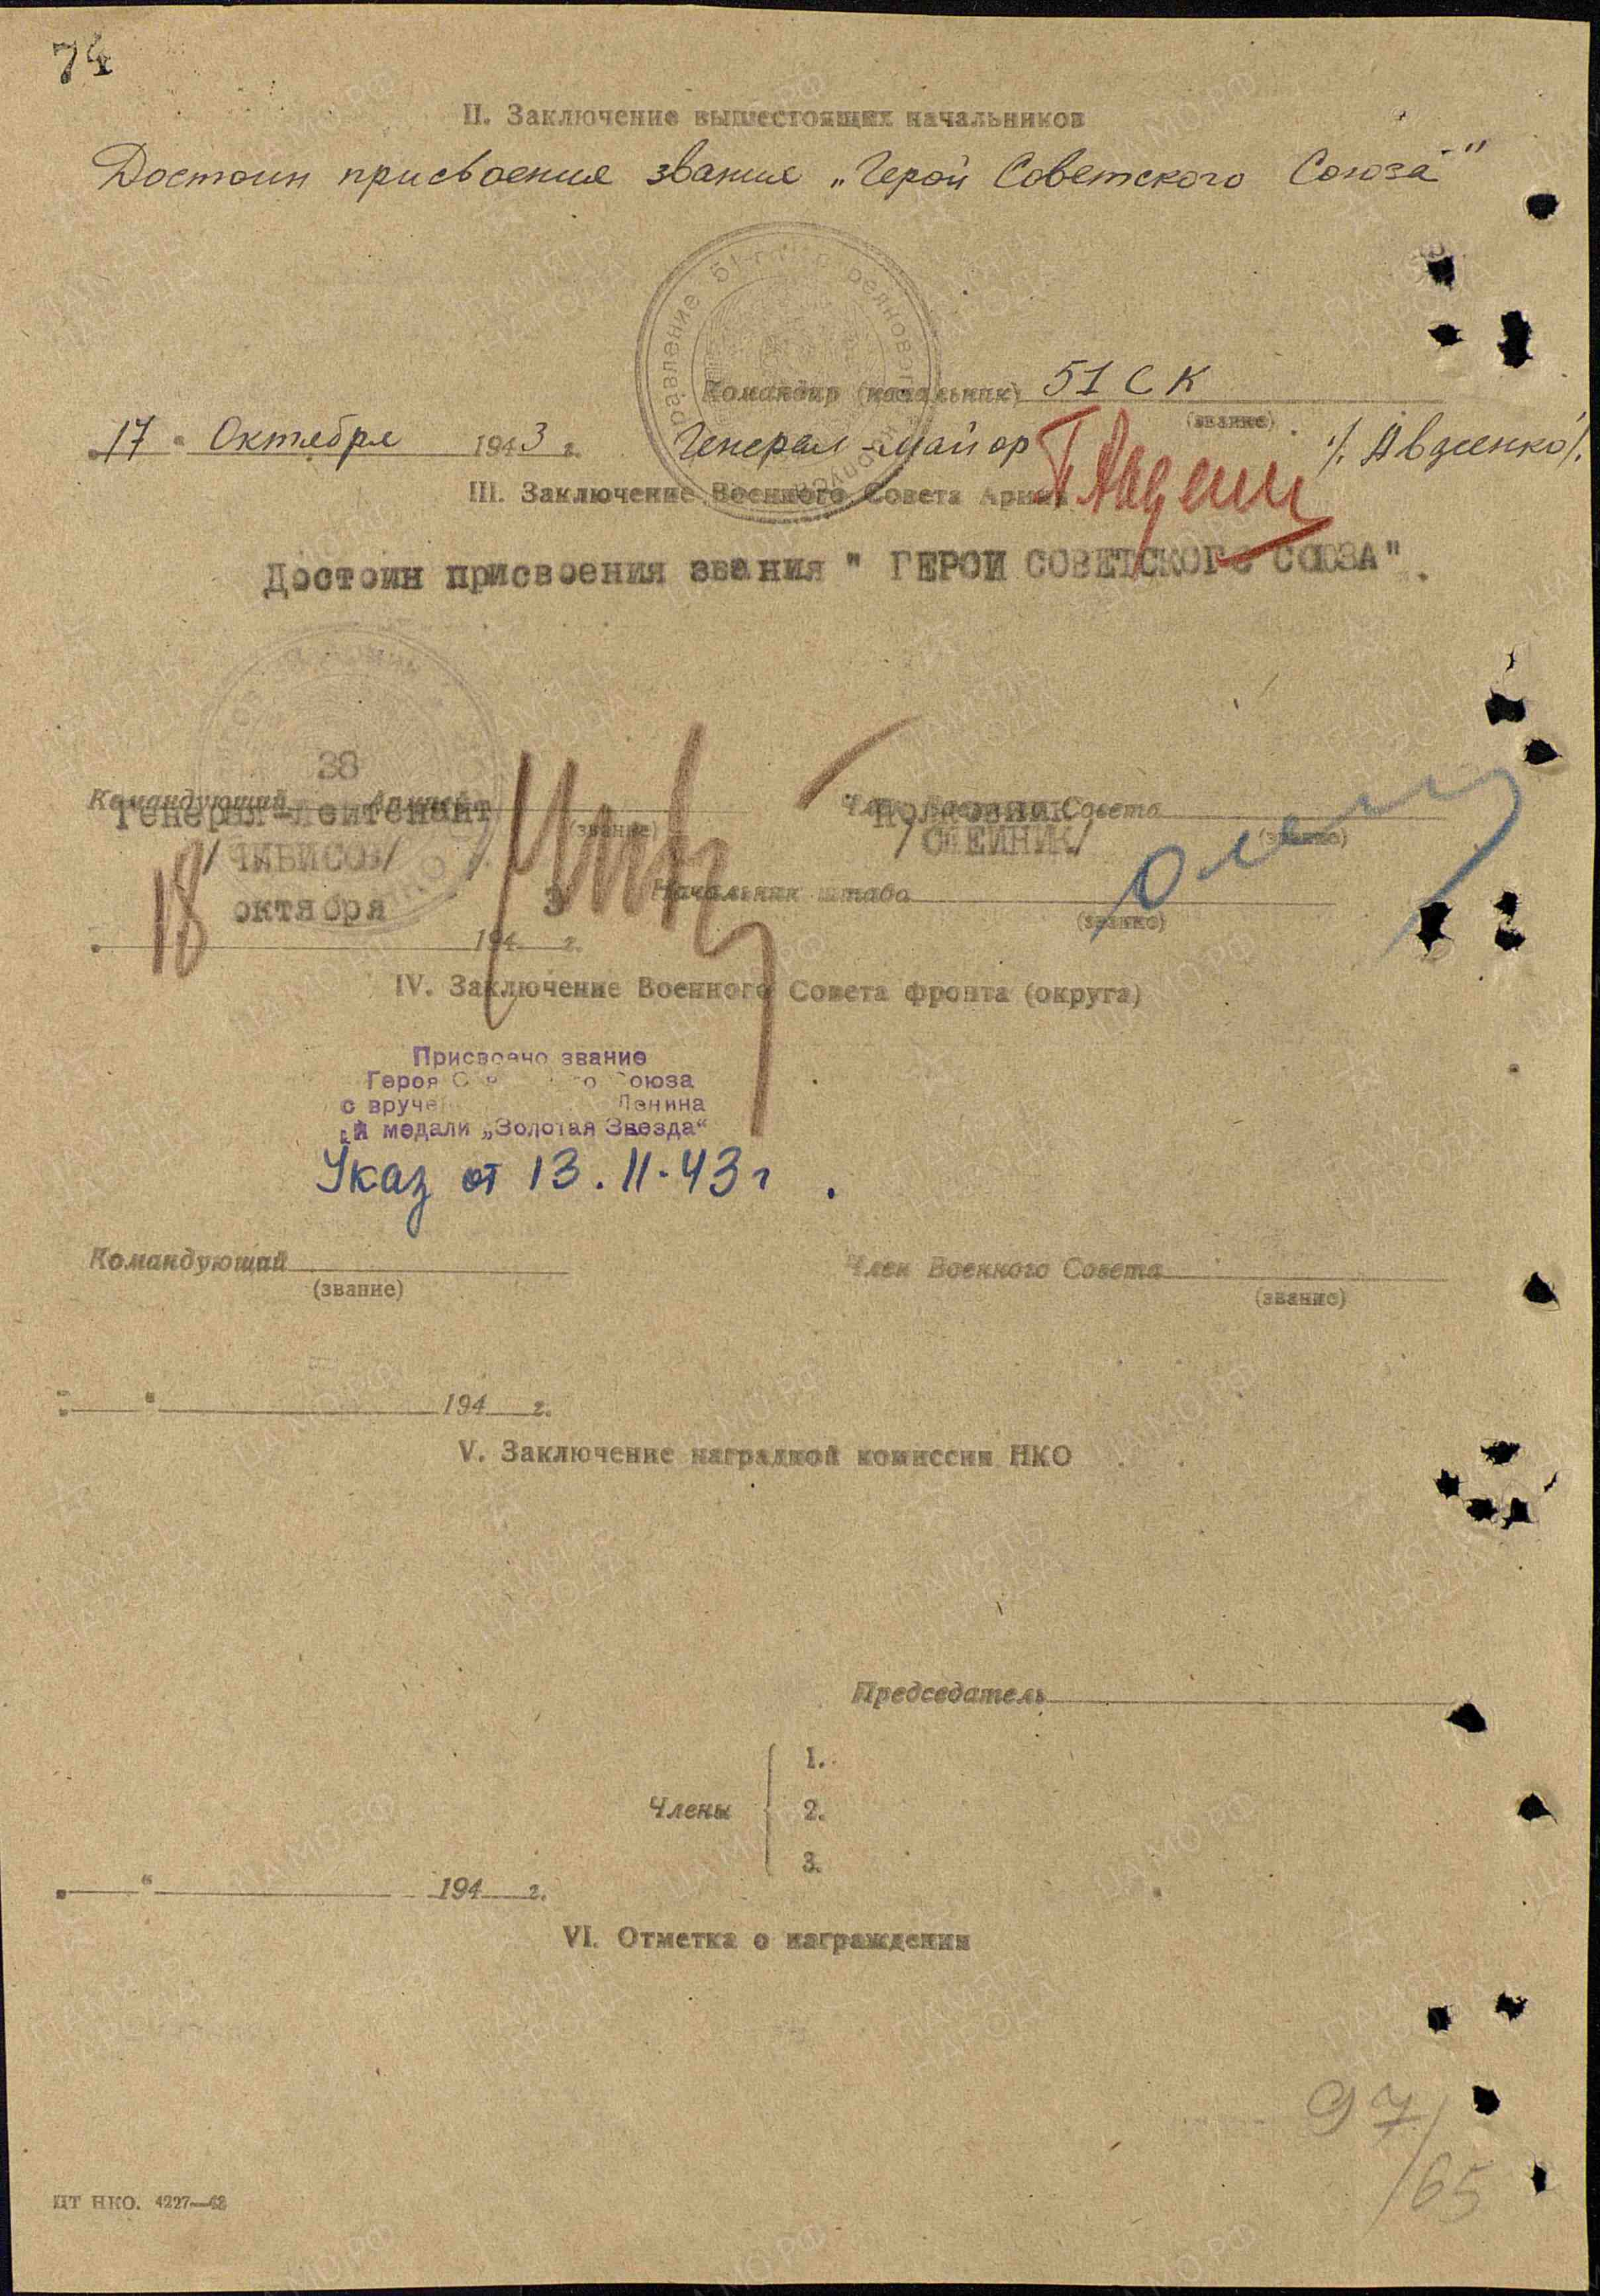 74
II. Заключение вышестоящих начальников
Достоин присвоения звания „Герой Советского Союза"
Командир (начальник) 51 СК
(звание)
„17" Октября 1943 г. Генерал-майор /Авдеенко/.
III. Заключение Военного Совета Армии
Достоин присвоения звания "ГЕРОЙ СОВЕТСКОГО СОЮЗА".
38
Командующий Армией
Генерал-лейтенант
(звание)
/ЧИБИСОВ/
18 октября 1943 г.
Член Военного Совета
Полковник
(звание)
/ОЛЕЙНИК/
Начальник штаба
(звание)
IV. Заключение Военного Совета фронта (округа)
Присвоено звание
Героя Союза
с Ленина
и медали „Золотая Звезда"
Указ от 13.11.43 г.
Командующий
(звание)
Член Военного Совета
(звание)
„ " 194 г.
V. Заключение наградной комиссии НКО
Председатель
Члены
1.
2.
3.
„ " 194 г.
VI. Отметка о награждении
97/65
ПТ НКО. 4227—43